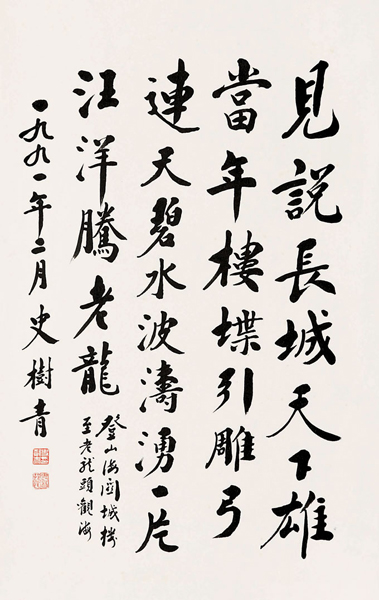 見說長城天下雄
當年樓堞引雕弓
連天碧水波濤湧一片
汪洋騰老龍
登山海関城樓
至老龍頭觀海
一九九一年二月史樹青